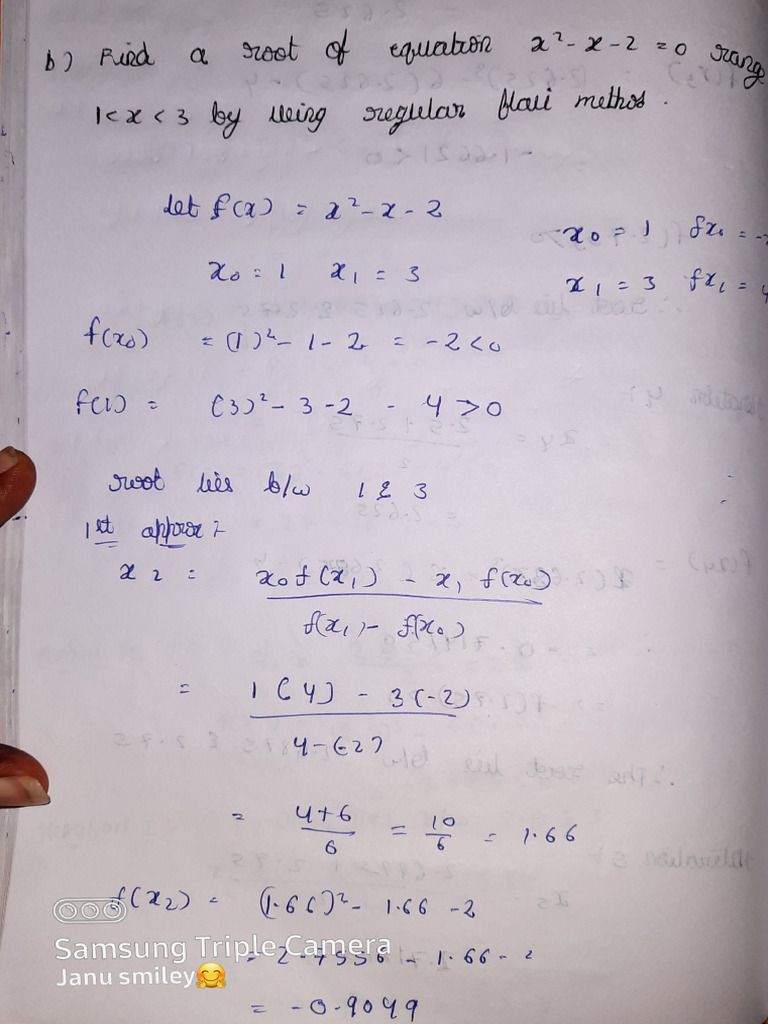 b) Find a root of equation x² - x - 2 = 0 rang
1 < x < 3 by using regular flasi method.
let f(x) = x² - x - 2
x0 = 1 fx0 = -2
x0 = 1 x1 = 3
x1 = 3 fx1 = 4
f(x0) = (1)² - 1 - 2 = -2 < 0
f(1) = (3)² - 3 - 2 - 4 > 0
root lies b/w 1 & 3
1st approx :-
x2 = x0 f(x1) - x1 f(x0)
f(x1) - f(x0)
= 1(4) - 3(-2)
4 - (-2)
= 4+6 / 6 = 10 / 6 = 1.66
f(x2) = (1.66)² - 1.66 - 2
= 2.7556 - 1.66 - 2
= -0.9049
Samsung Triple Camera
Janu smiley🤗